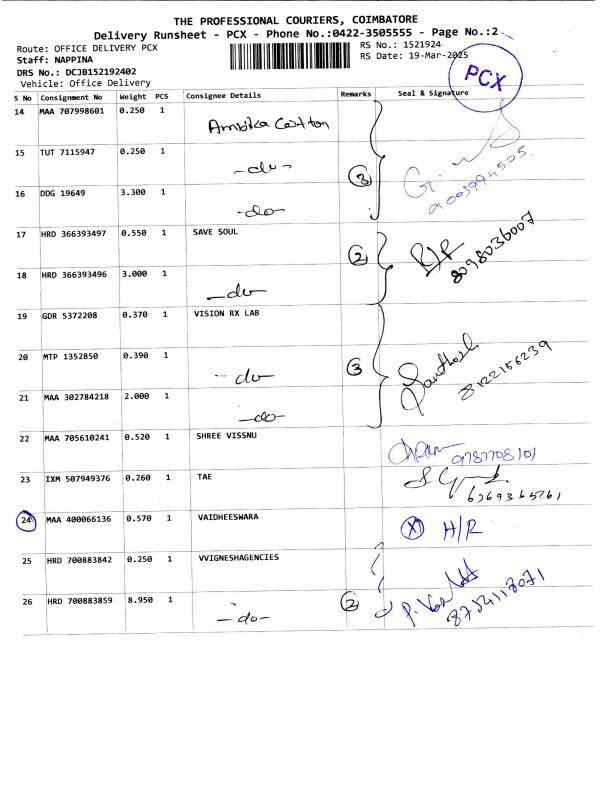 THE PROFESSIONAL COURIERS, COIMBATORE
Delivery Runsheet - PCX - Phone No.:0422-3505555 - Page No.:2
Route: OFFICE DELIVERY PCX
RS No.: 1521924
Staff: NAPPINA
RS Date: 19-Mar-2025
DRS No.: DCJB152192402
Vehicle: Office Delivery
PCX
S No Consignment No Weight PCS Consignee Details Remarks Seal & Signature
14 MAA 707998601 0.250 1 Ambika Cotton
15 TUT 7115947 0.250 1 -do- 3
16 DDG 19649 3.300 1 -do-
17 HRD 366393497 0.550 1 SAVE SOUL 2 8098036007
18 HRD 366393496 3.000 1 -do-
19 GDR 5372208 0.370 1 VISION RX LAB
20 MTP 1352850 0.390 1 -do- 3 Santhosh 8122156239
21 MAA 302784218 2.000 1 -do-
22 MAA 705610241 0.520 1 SHREE VISSNU 9787708101
23 IXM 507949376 0.260 1 TAE
24 MAA 400066136 0.570 1 VAIDHEESWARA X H/R
25 HRD 700883842 0.250 1 VVIGNESHAGENCIES
26 HRD 700883859 8.950 1 -do- 2 8754118071